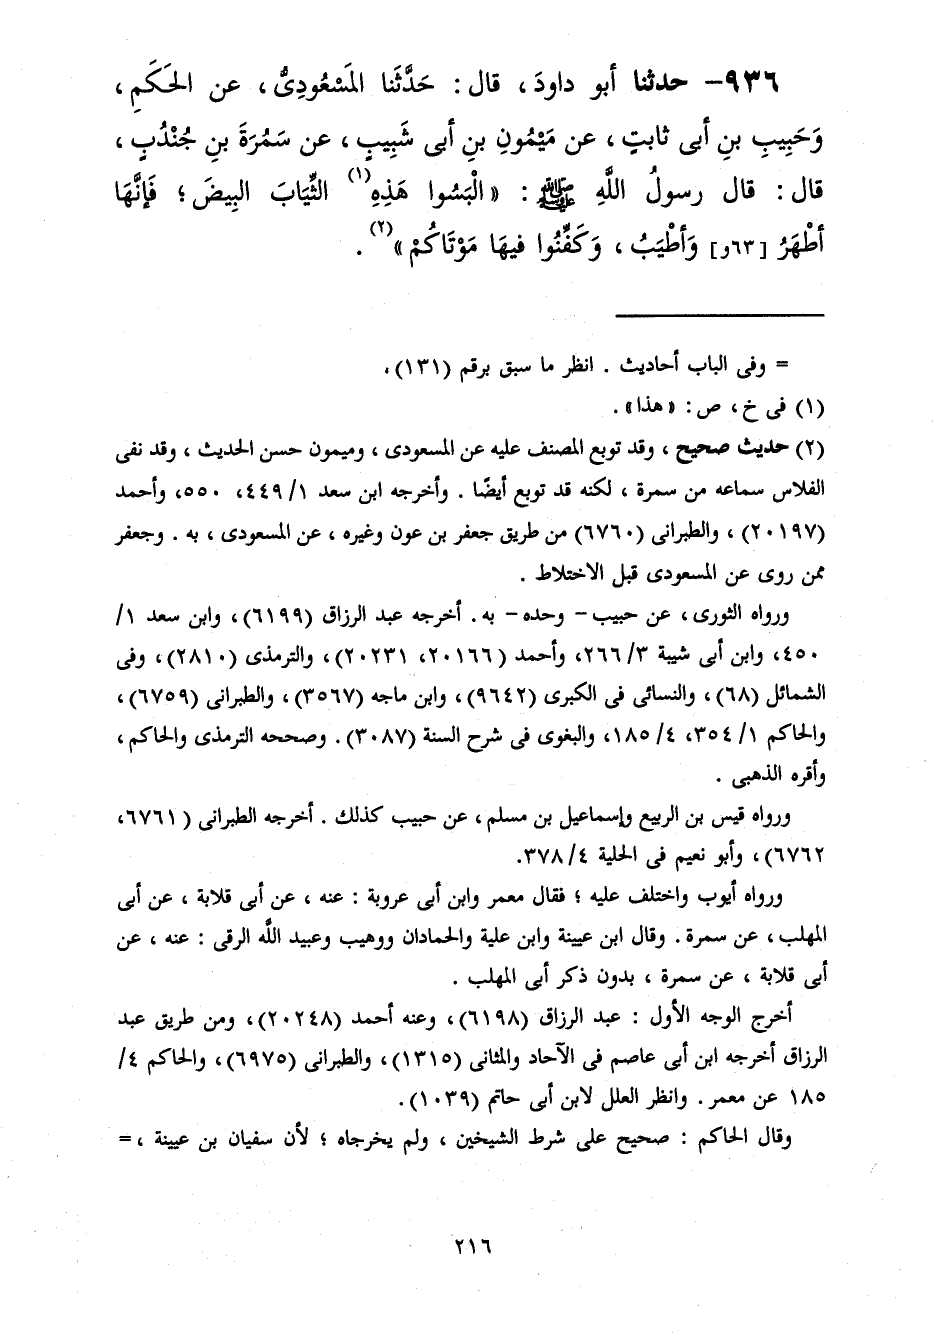 ٩٣٦- حدثنا أبو داودَ ، قال : حَدَّثَنا المَسْعُودِىُّ ، عن الحَكَمِ ،
وَحَبِيبِ بنِ أبى ثابتٍ ، عن مَيْمُونِ بنِ أبى شَبِيبٍ ، عن سَمُرَةَ بنِ جُنْدُبٍ ،
قال : قال رسولُ اللَّهِ ﷺ : « الْبَسُوا هَذِهِ(١) الثِّيَابَ البِيضَ ؛ فَإنَّهَا
أطْهَرُ [٦٣و] وَأطْيَبُ ، وَكَفِّنُوا فيهَا مَوْتَاكُمْ »(٢) .
= وفى الباب أحاديث . انظر ما سبق برقم (١٣١) .
(١) فى خ ، ص : « هذا » .
(٢) حديث صحيح ، وقد توبع المصنف عليه عن المسعودى ، وميمون حسن الحديث ، وقد نفى
الفلاس سماعه من سمرة ، لكنه قد توبع أيضًا . وأخرجه ابن سعد ١/ ٤٤٩، ٥٥٠، وأحمد
(٢٠١٩٧) ، والطبرانى (٦٧٦٠) من طريق جعفر بن عون وغيره ، عن المسعودى ، به . وجعفر
ممن روى عن المسعودى قبل الاختلاط .
ورواه الثورى ، عن حبيب - وحده - به . أخرجه عبد الرزاق (٦١٩٩) ، وابن سعد ١/
٤٥٠، وابن أبى شيبة ٣/ ٢٦٦، وأحمد (٢٠١٦٦، ٢٠٢٣١) ، والترمذى (٢٨١٠) ، وفى
الشمائل (٦٨) ، والنسائى فى الكبرى (٩٦٤٢) ، وابن ماجه (٣٥٦٧) ، والطبرانى (٦٧٥٩) ،
والحاكم ١/ ٣٥٤، ٤/ ١٨٥، والبغوى فى شرح السنة (٣٠٨٧) . وصححه الترمذى والحاكم ،
وأقره الذهبى .
ورواه قيس بن الربيع وإسماعيل بن مسلم ، عن حبيب كذلك . أخرجه الطبرانى (٦٧٦١،
٦٧٦٢) ، وأبو نعيم فى الحلية ٤/ ٣٧٨.
ورواه أيوب واختلف عليه ؛ فقال معمر وابن أبى عروبة : عنه ، عن أبى قلابة ، عن أبى
المهلب ، عن سمرة . وقال ابن عيينة وابن علية والحمادان ووهيب وعبيد اللَّه الرقى : عنه ، عن
أبى قلابة ، عن سمرة ، بدون ذكر أبى المهلب .
أخرج الوجه الأول : عبد الرزاق (٦١٩٨) ، وعنه أحمد (٢٠٢٤٨) ، ومن طريق عبد
الرزاق أخرجه ابن أبى عاصم فى الآحاد والمثانى (١٣١٥) ، والطبرانى (٦٩٧٥) ، والحاكم ٤/
١٨٥ عن معمر . وانظر العلل لابن أبى حاتم (١٠٣٩) .
وقال الحاكم : صحيح على شرط الشيخين ، ولم يخرجاه ؛ لأن سفيان بن عيينة ، =
٢١٦